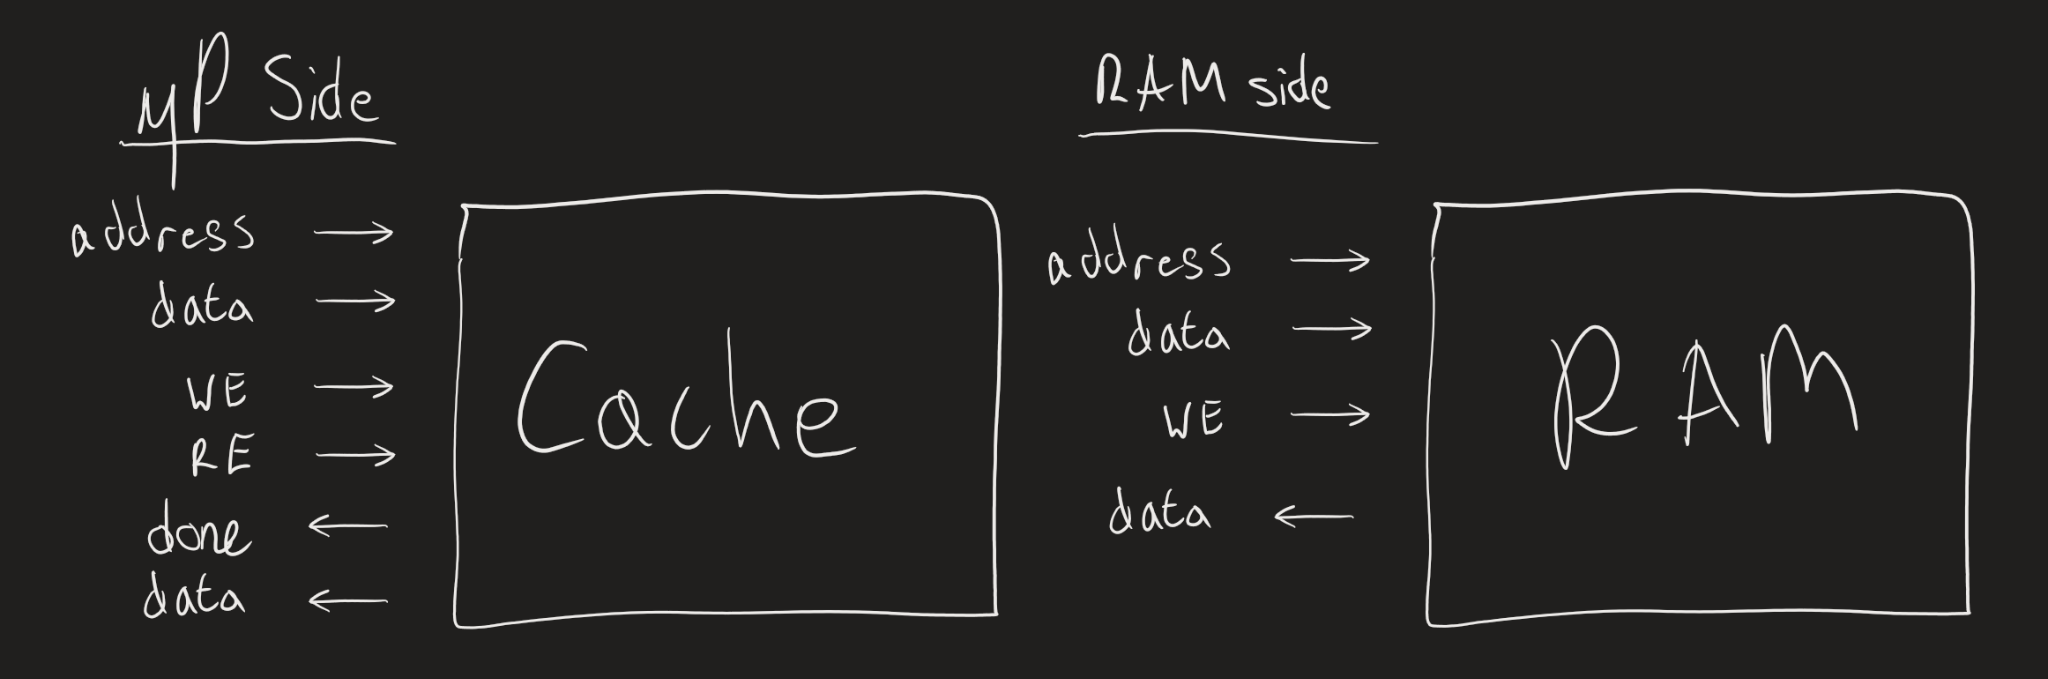 μP Side
address →
data →
WE →
RE →
done ←
data ←
Cache
RAM side
address →
data →
WE →
data ←
RAM